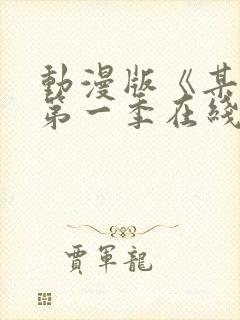 動漫版《某
第一季在綫
賈軍龍